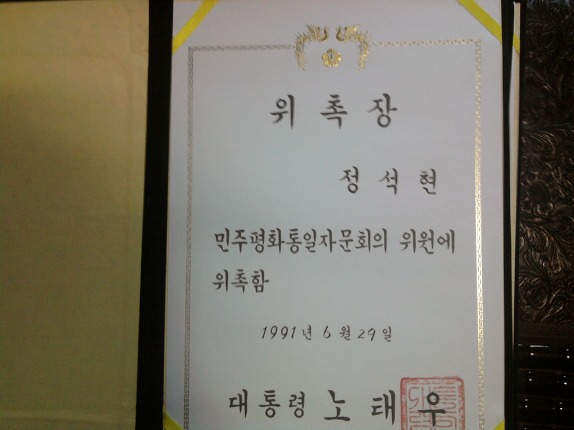 위촉장
정석현
민주평화통일자문회의 위원에
위촉함
1991년 6월 29일
대통령 노태우